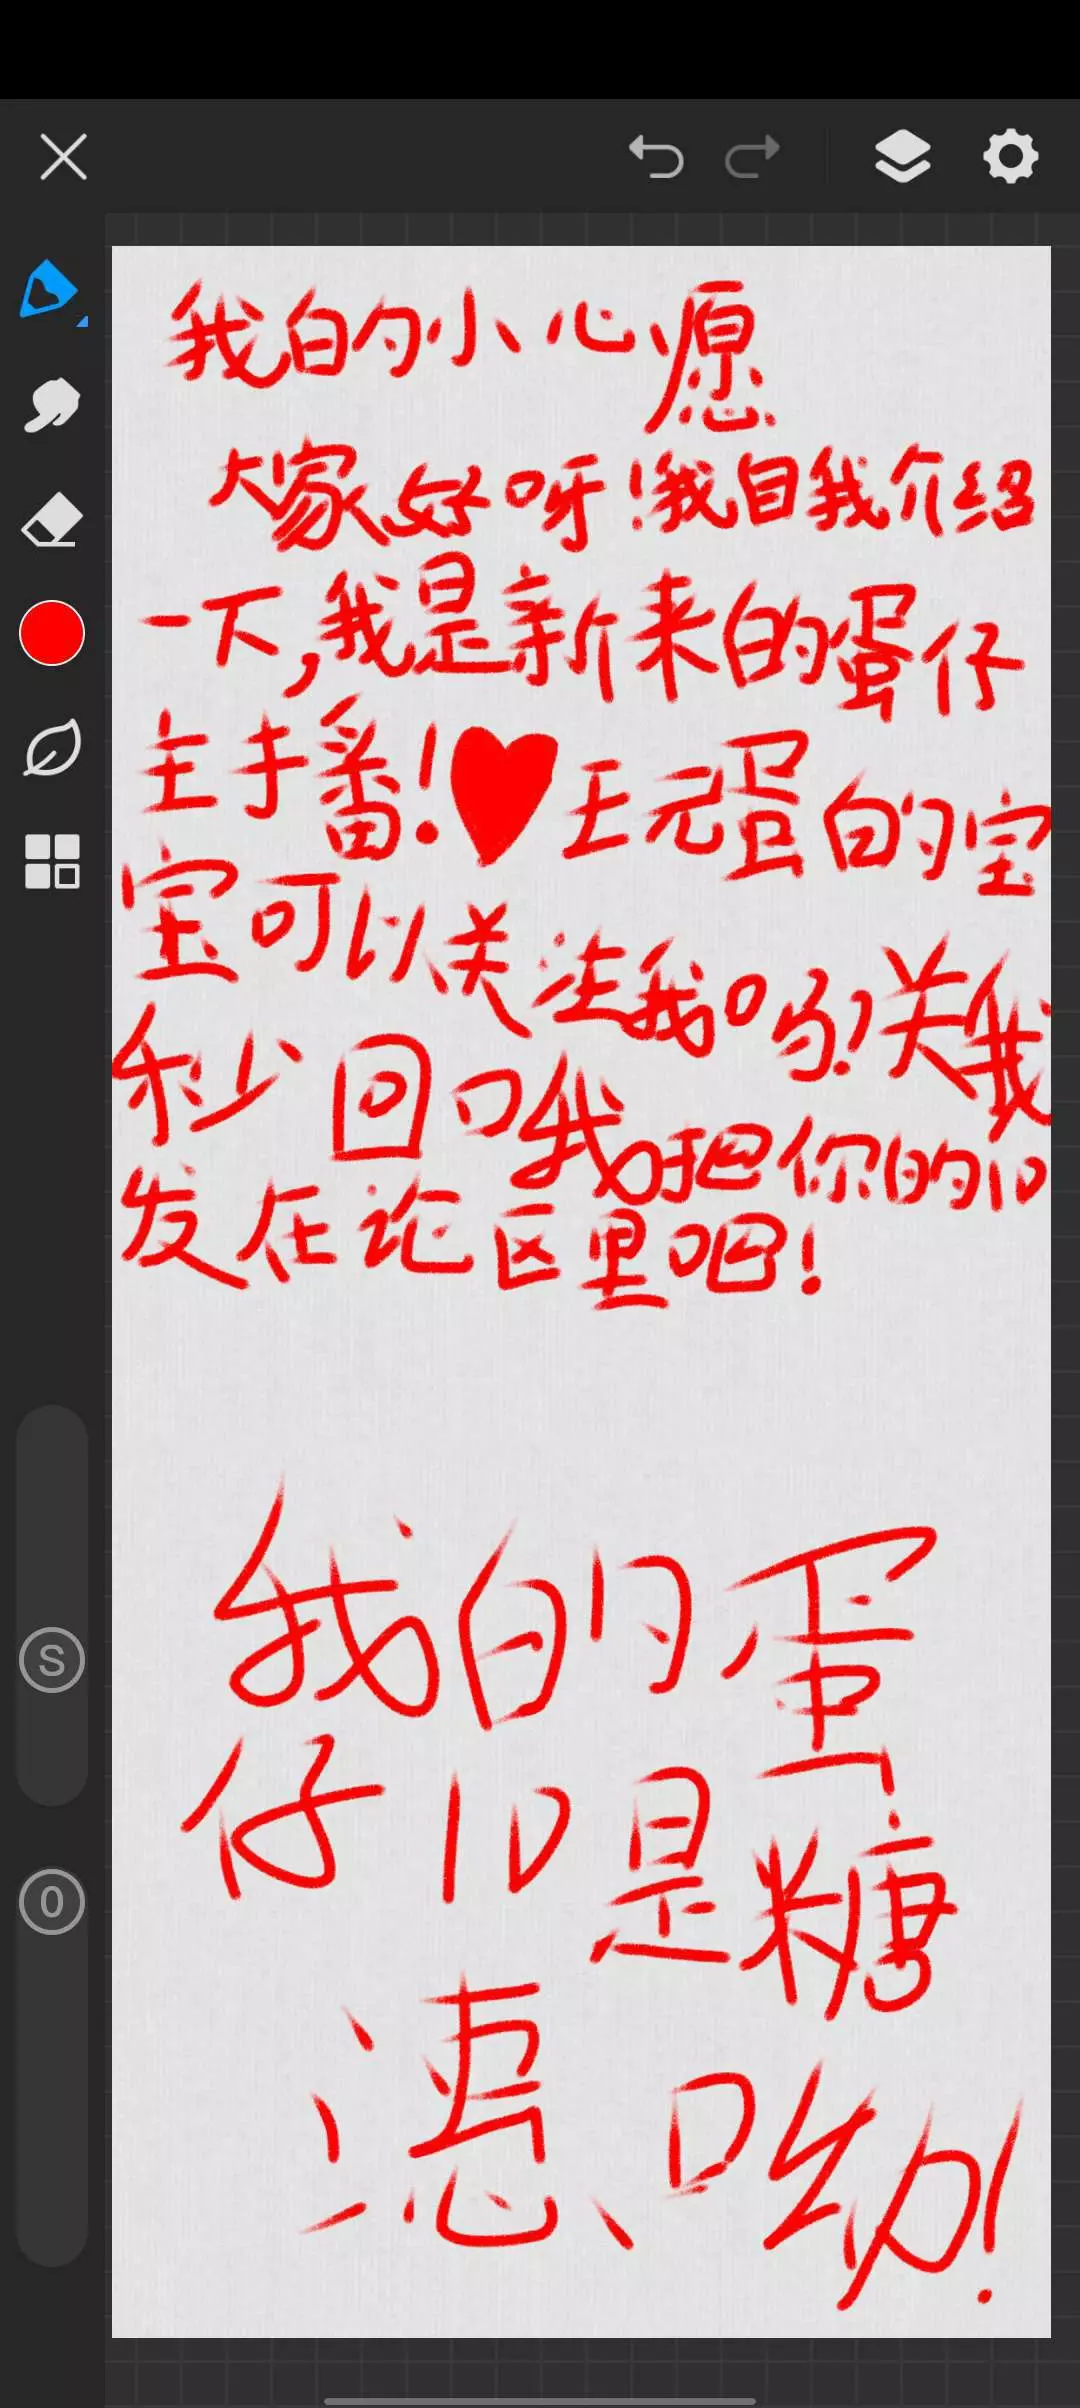 我的小心愿
大家好呀!我自我介绍
一下,我是新来的蛋仔
主播!♥王元蛋的宝
宝可以关注我吗?关我
秒回哦。把你的ID
发在论区里吧!
我的蛋
仔ID是糖
呦!
S
0